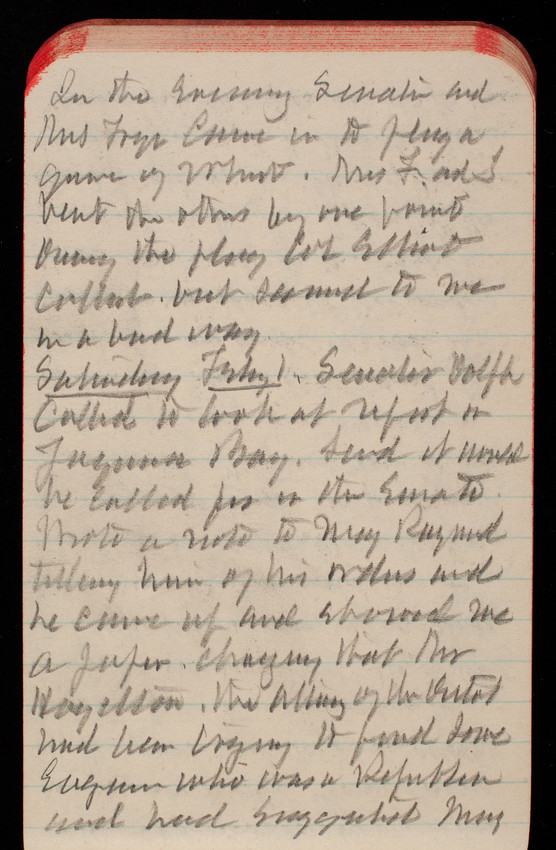 In the evening Senator and
Mrs Frye came in to play a
game of Whist. Mrs F. and I
beat the others by one point
During the play Col Elliot
Called. but seemed to me
in a bad way.
Saturday Feby 1. Senator Dolph
Called to look at report on
Yaquina Bay. Said it would
be called for in the Senate.
Wrote a note to Maj Raymond
telling him of his orders and
he came up and showed me
a paper. charging that Mr
Hazelton. the Atty of the District
had been trying to find some
Engineer who was a Republican
and had suggested Maj